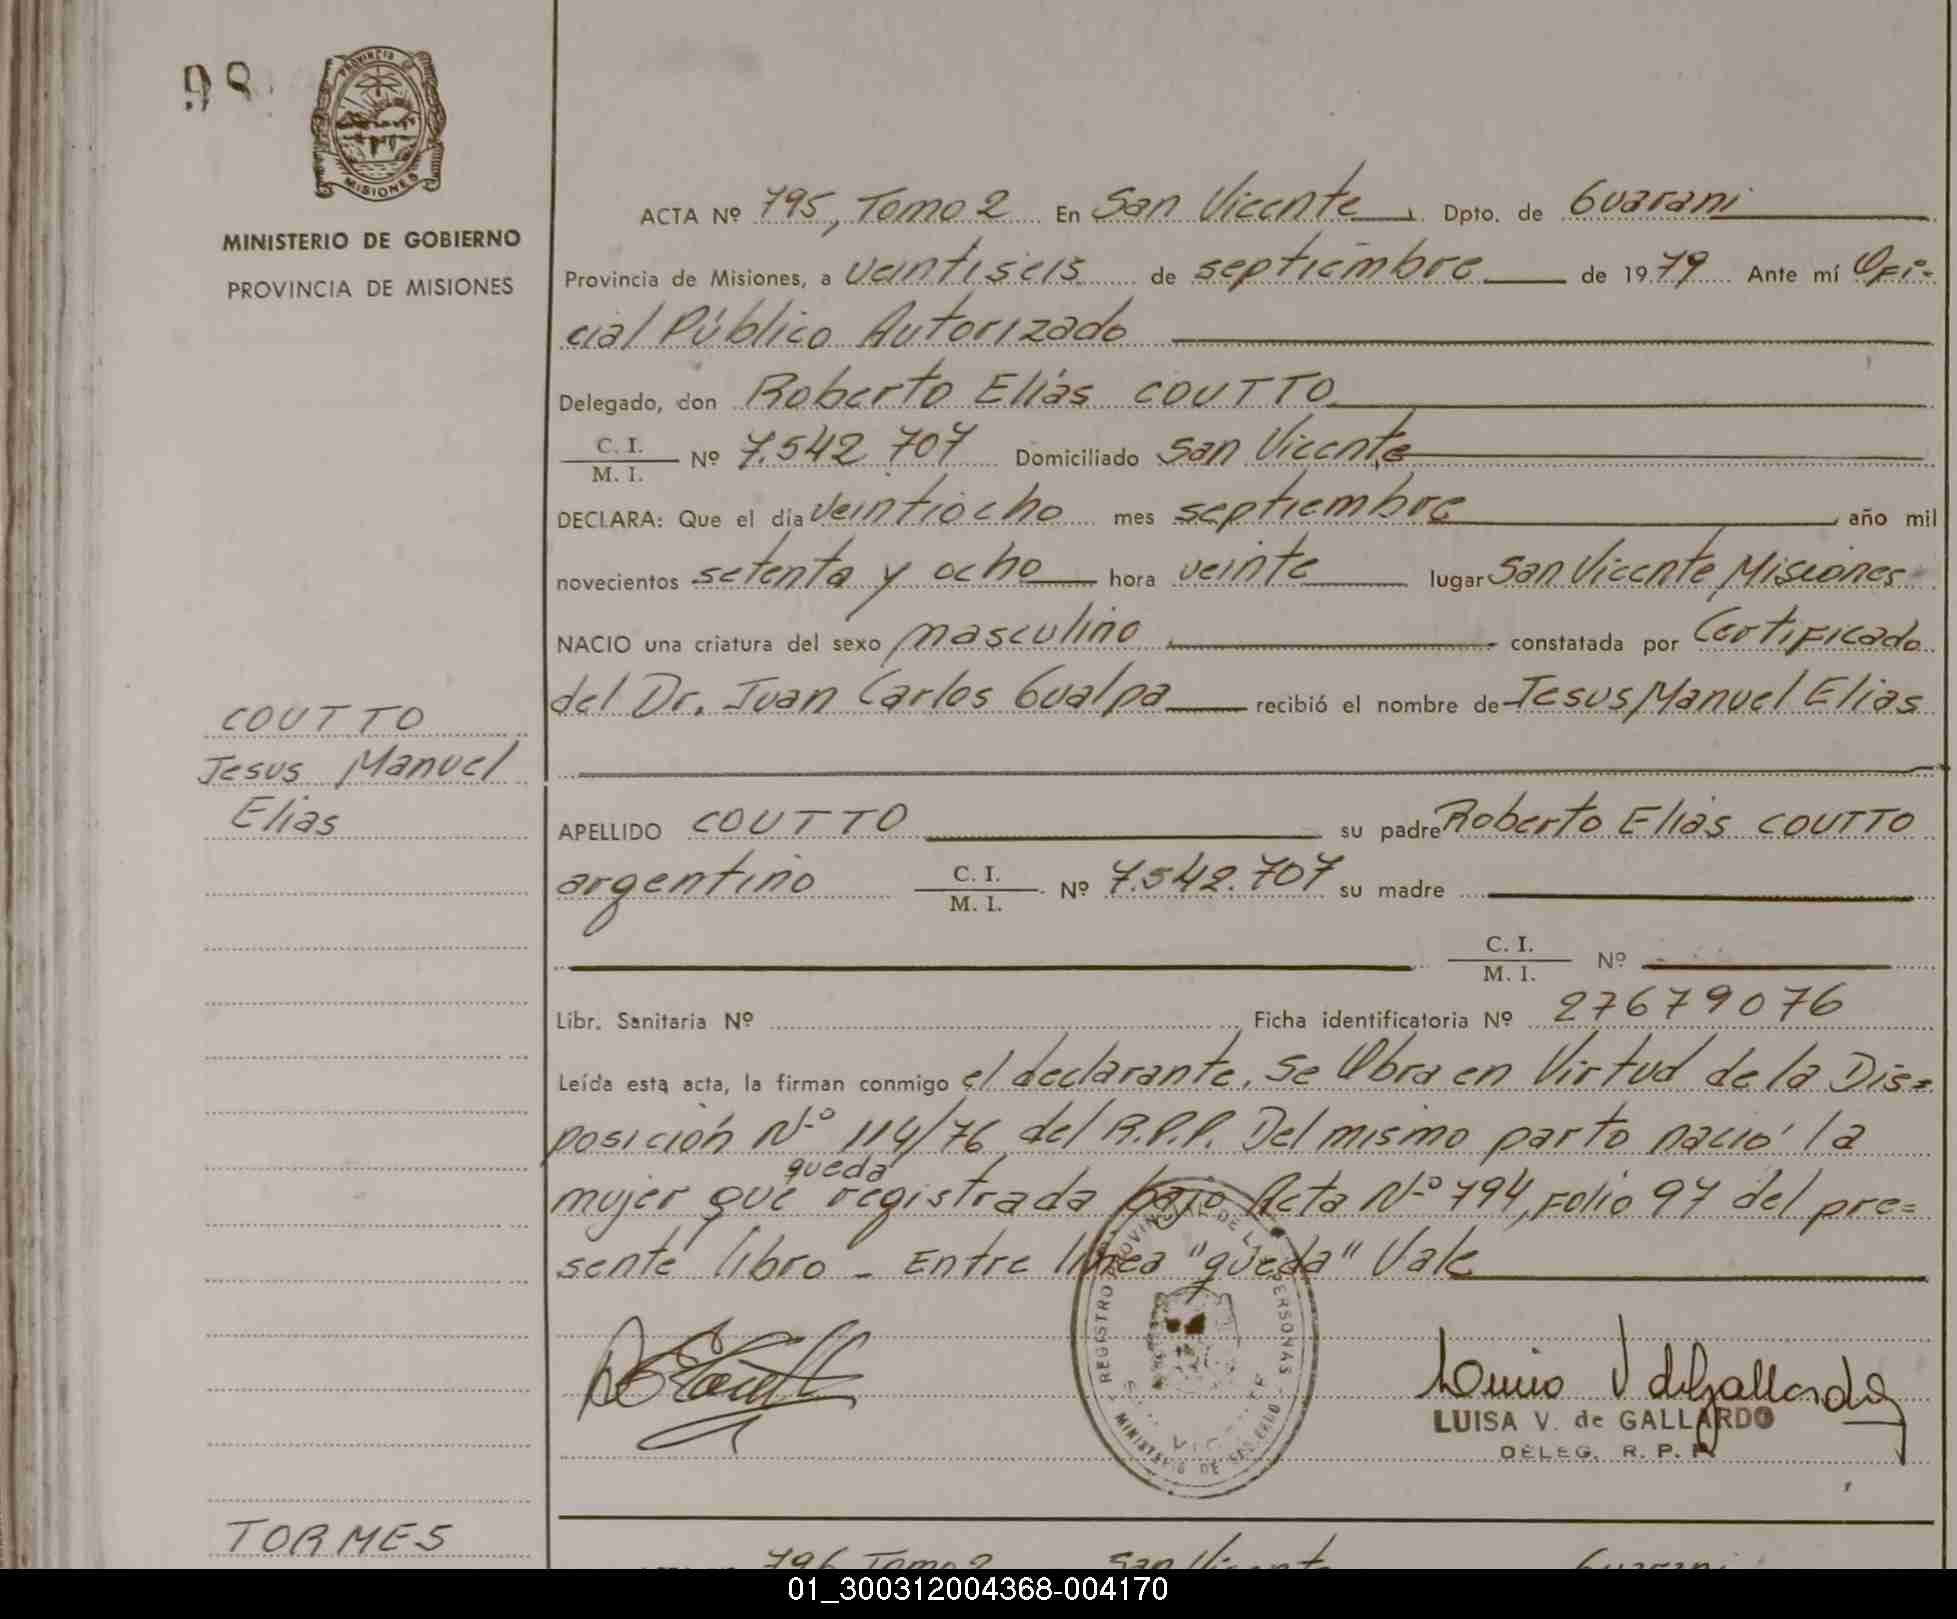 98
PROVINCIA DE
MISIONES
MINISTERIO DE GOBIERNO
PROVINCIA DE MISIONES
ACTA Nº 795, Tomo 2 En San Vicente Dpto. de Guarani
Provincia de Misiones, a veintiseis de septiembre de 1979 Ante mí Ofi-
cial Público Autorizado
Delegado, don Roberto Elias COUTTO
C. I.
M. I. Nº 7.542.707 Domiciliado San Vicente
DECLARA: Que el día veintiocho mes septiembre año mil
novecientos setenta y ocho hora veinte lugar San Vicente Misiones
NACIO una criatura del sexo masculino constatada por Certificado
del Dr. Juan Carlos Gualpa recibió el nombre de Jesus Manuel Elias
COUTTO
Jesus Manuel
Elias
APELLIDO COUTTO su padre Roberto Elias COUTTO
argentino C. I.
M. I. Nº 7.542.707 su madre
C. I.
M. I. Nº
Libr. Sanitaria Nº Ficha identificatoria Nº 27679076
Leída esta acta, la firman conmigo el declarante. Se Obra en Virtud de la Dis=
posición Nº 114/76 del R.P.P. Del mismo parto nació la
queda
mujer que registrada bajo Acta Nº 794, Folio 97 del pre=
sente libro - Entre línea "queda" Vale
REGISTRO PROVINCIAL DE LAS PERSONAS
MINISTERIO DE
LUISA V. de GALLARDO
DELEG. R. P. P.
TORMES
796 Tomo 2 San Vicente Guarani
01_300312004368-004170